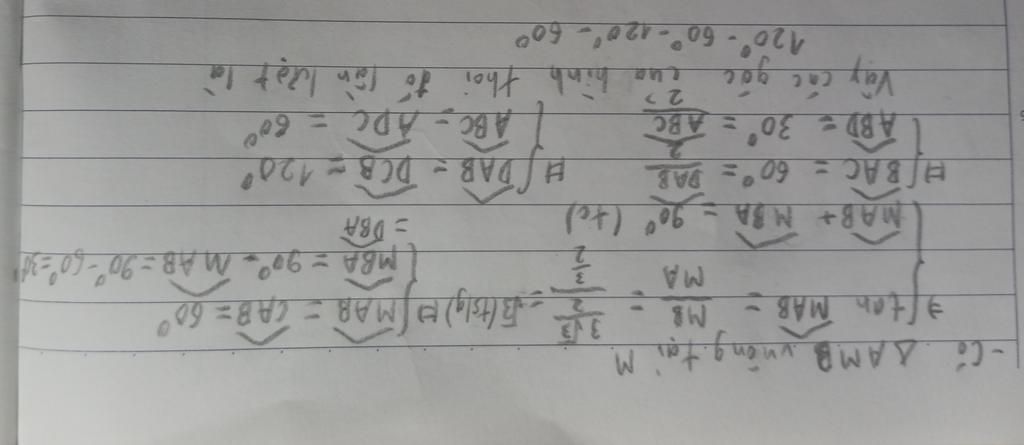 - Có △AMB vuông tại M
⇒ { tan MAB = MB/MA = (3√3/2)/(3/2) = √3 (tslg) ⇔ { MAB = CAB = 60°
{ MAB + MBA = 90° (tc) { MBA = 90° - MAB = 90° - 60° = 30°
= DBA
⇔ { BAC = 60° = DAB/2 ⇔ { DAB = DCB = 120°
{ ABD = 30° = ABC/2 { ABC = ADC = 60°
Vậy các góc của hình thoi đó lần lượt là
120° - 60° - 120° - 60°